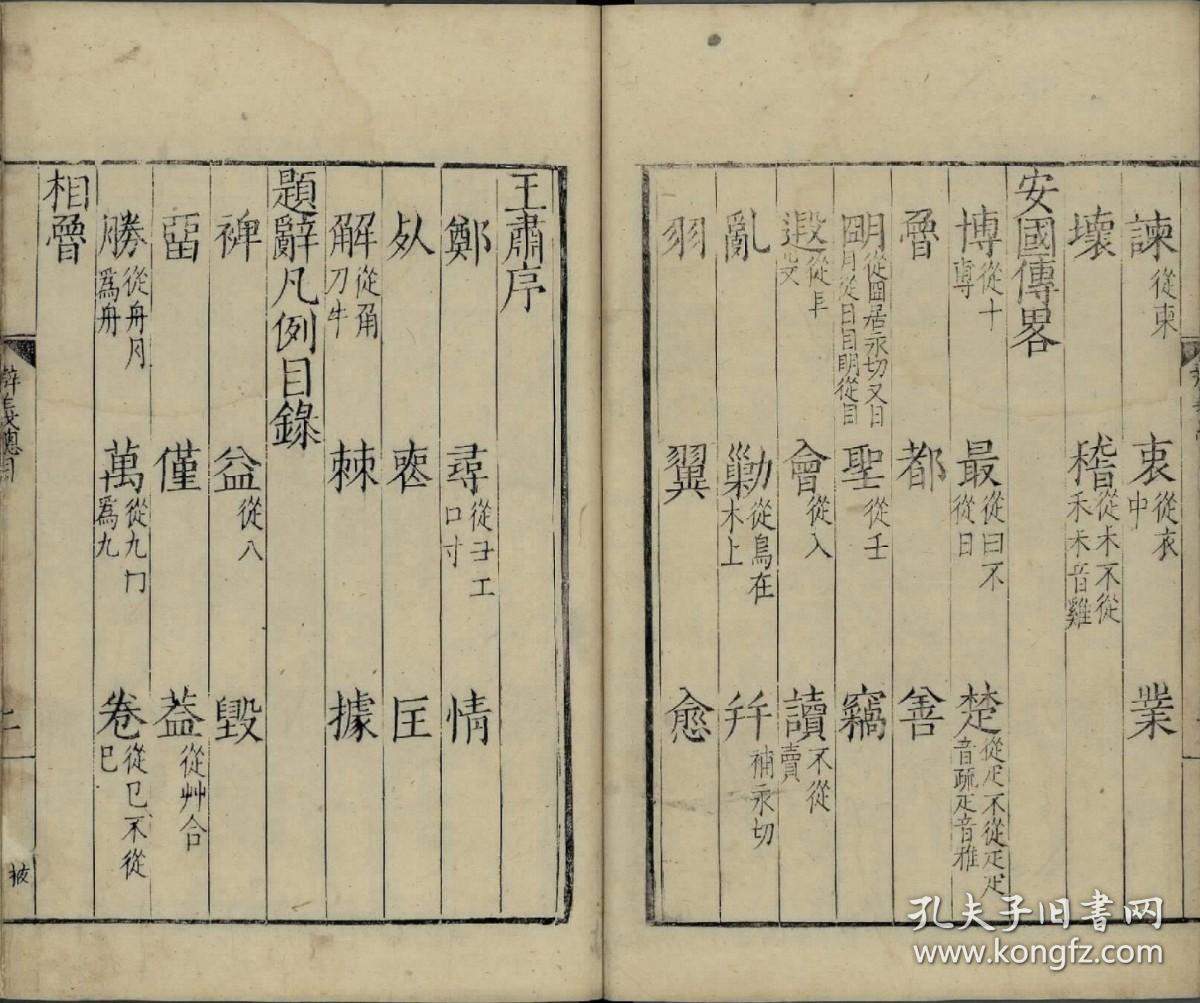 諫從柬 衷從衣中 業
壞 稽從禾不從禾禾音雞
安國傳畧
博從十尃 最從曰不從日 楚從疋不從疋疋音疏疋音雅
魯 都 善
明從囧居永切又日囧月從日目明從目 聖從壬 竊
遐從𠬝 會從入 讀不從賣
亂 勦從鳥在木上 幷補永切
羽 翼 愈
王肅序
鄭 尋從彐工口寸 情

解從角刀牛 棘 據
題辭凡例目錄
裨 益從八 毀
畱 僅 葢從艸合
勝從舟月爲舟 萬從九冂爲九 卷從㔾不從巳
相魯
孔夫子旧书网
www.kongfz.com